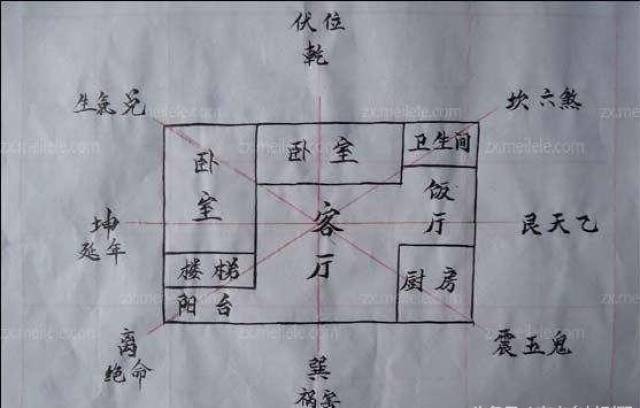 伏位
乾
生氣兑
坎六煞
卧室
卧室
卫生间
饭厅
坤
延年
客厅
艮天乙
楼梯
厨房
阳台
离
绝命
巽
祸害
震五鬼
zx.meilele.com
zx.meilele.com
zx.meilele.com
zx.meilele.com